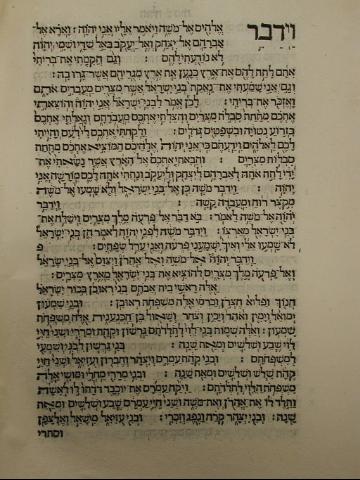 וידבר אלהים אל־משה ויאמר אליו אני יהוה׃ וארא אל־
אברהם אל־יצחק ואל־יעקב באל שדי ושמי יהוה
לא נודעתי להם׃ וגם הקמתי את־בריתי
אתם לתת להם את־ארץ כנען את ארץ מגריהם אשר־גרו בה׃
וגם אני שמעתי את־נאקת בני ישראל אשר מצרים מעבדים אתם
ואזכר את־בריתי׃ לכן אמר לבני־ישראל אני יהוה והוצאתי
אתכם מתחת סבלת מצרים והצלתי אתכם מעבדתם וגאלתי אתכם
בזרוע נטויה ובשפטים גדלים׃ ולקחתי אתכם לי לעם והייתי
לכם לאלהים וידעתם כי אני יהוה אלהיכם המוציא אתכם מתחת
סבלות מצרים׃ והבאתי אתכם אל־הארץ אשר נשאתי את־
ידי לתת אתה לאברהם ליצחק וליעקב ונתתי אתה לכם מורשה אני
יהוה׃ וידבר משה כן אל־בני ישראל ולא שמעו אל־משה
מקצר רוח ומעבדה קשה׃ וידבר
יהוה אל־משה לאמר׃ בא דבר אל־פרעה מלך מצרים וישלח את־
בני־ישראל מארצו׃ וידבר משה לפני יהוה לאמר הן בני־ישראל
לא־שמעו אלי ואיך ישמעני פרעה ואני ערל שפתים׃ פ
וידבר יהוה אל־משה ואל־אהרן ויצום אל־בני ישראל
ואל־פרעה מלך מצרים להוציא את־בני־ישראל מארץ מצרים׃
אלה ראשי בית־אבתם בני ראובן בכור ישראל
חנוך ופלוא חצרן וכרמי אלה משפחת ראובן׃ ובני שמעון
ימואל וימין ואהד ויכין וצחר ושאול בן־הכנענית אלה משפחת
שמעון׃ ואלה שמות בני־לוי לתלדתם גרשון וקהת ומררי ושני חיי
לוי שבע ושלשים ומאת שנה׃ בני גרשון לבני ושמעי
למשפחתם׃ ובני קהת עמרם ויצהר וחברון ועזיאל ושני חיי
קהת שלש ושלשים ומאת שנה׃ ובני מררי מחלי ומושי אלה
משפחת הלוי לתלדתם׃ ויקח עמרם את־יוכבד דדתו לו לאשה
ותלד לו את־אהרן ואת־משה ושני חיי עמרם שבע ושלשים ומאת
שנה׃ ובני יצהר קרח ונפג וזכרי׃ ובני עזיאל מישאל ואלצפן
וסתרי